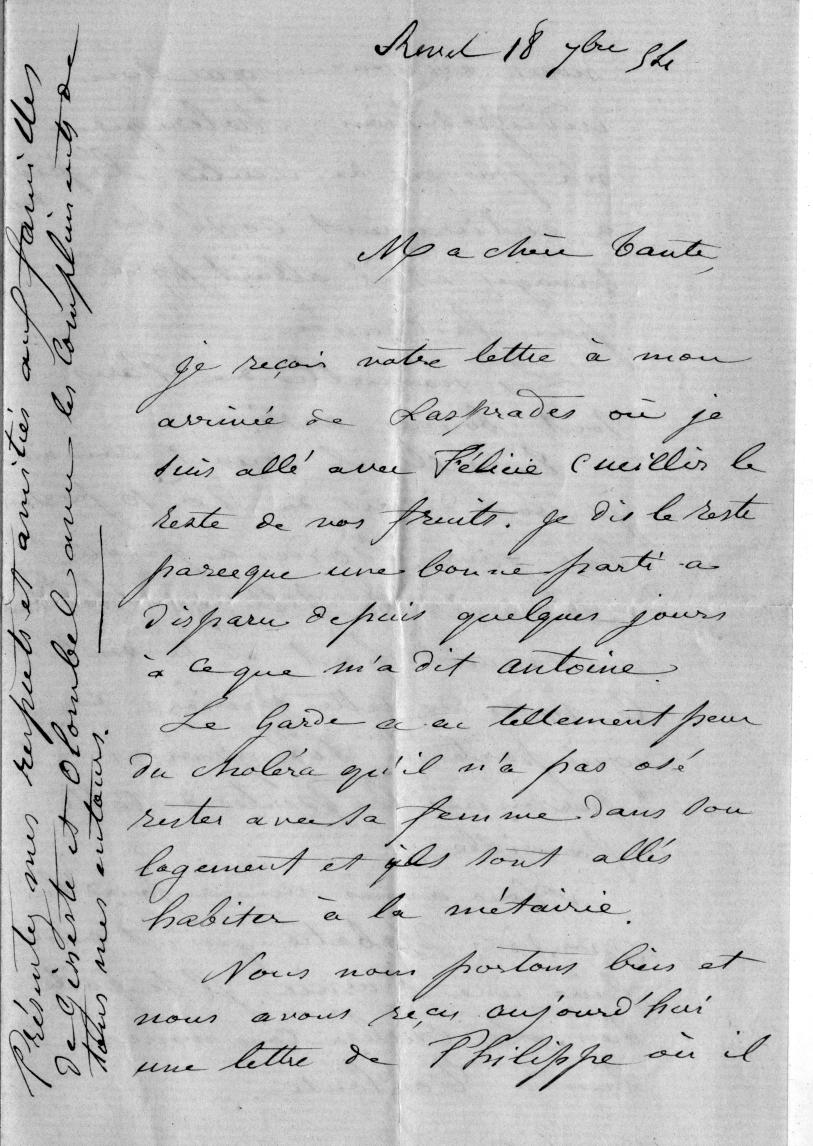 Revel 18 7bre 54
Ma chère tante,
je reçois votre lettre à mon
arrivée de Lasprades où je
suis allé avec Félicie cueillir le
reste de nos fruits. je dis le reste
parceque une bonne parti a
disparu depuis quelques jours
à ce que m'a dit antoine.
Le Garde a eu tellement peur
du choléra qu'il n'a pas osé
rester avec sa femme dans son
logement et ils sont allés
habiter à la métairie.
Nous nous portons bien et
nous avons reçu aujourd'hui
une lettre de Philippe où il
Présentez mes respects et amitiés aux familles
de Giserte et Olombel avec les compliments de
tous mes entours.